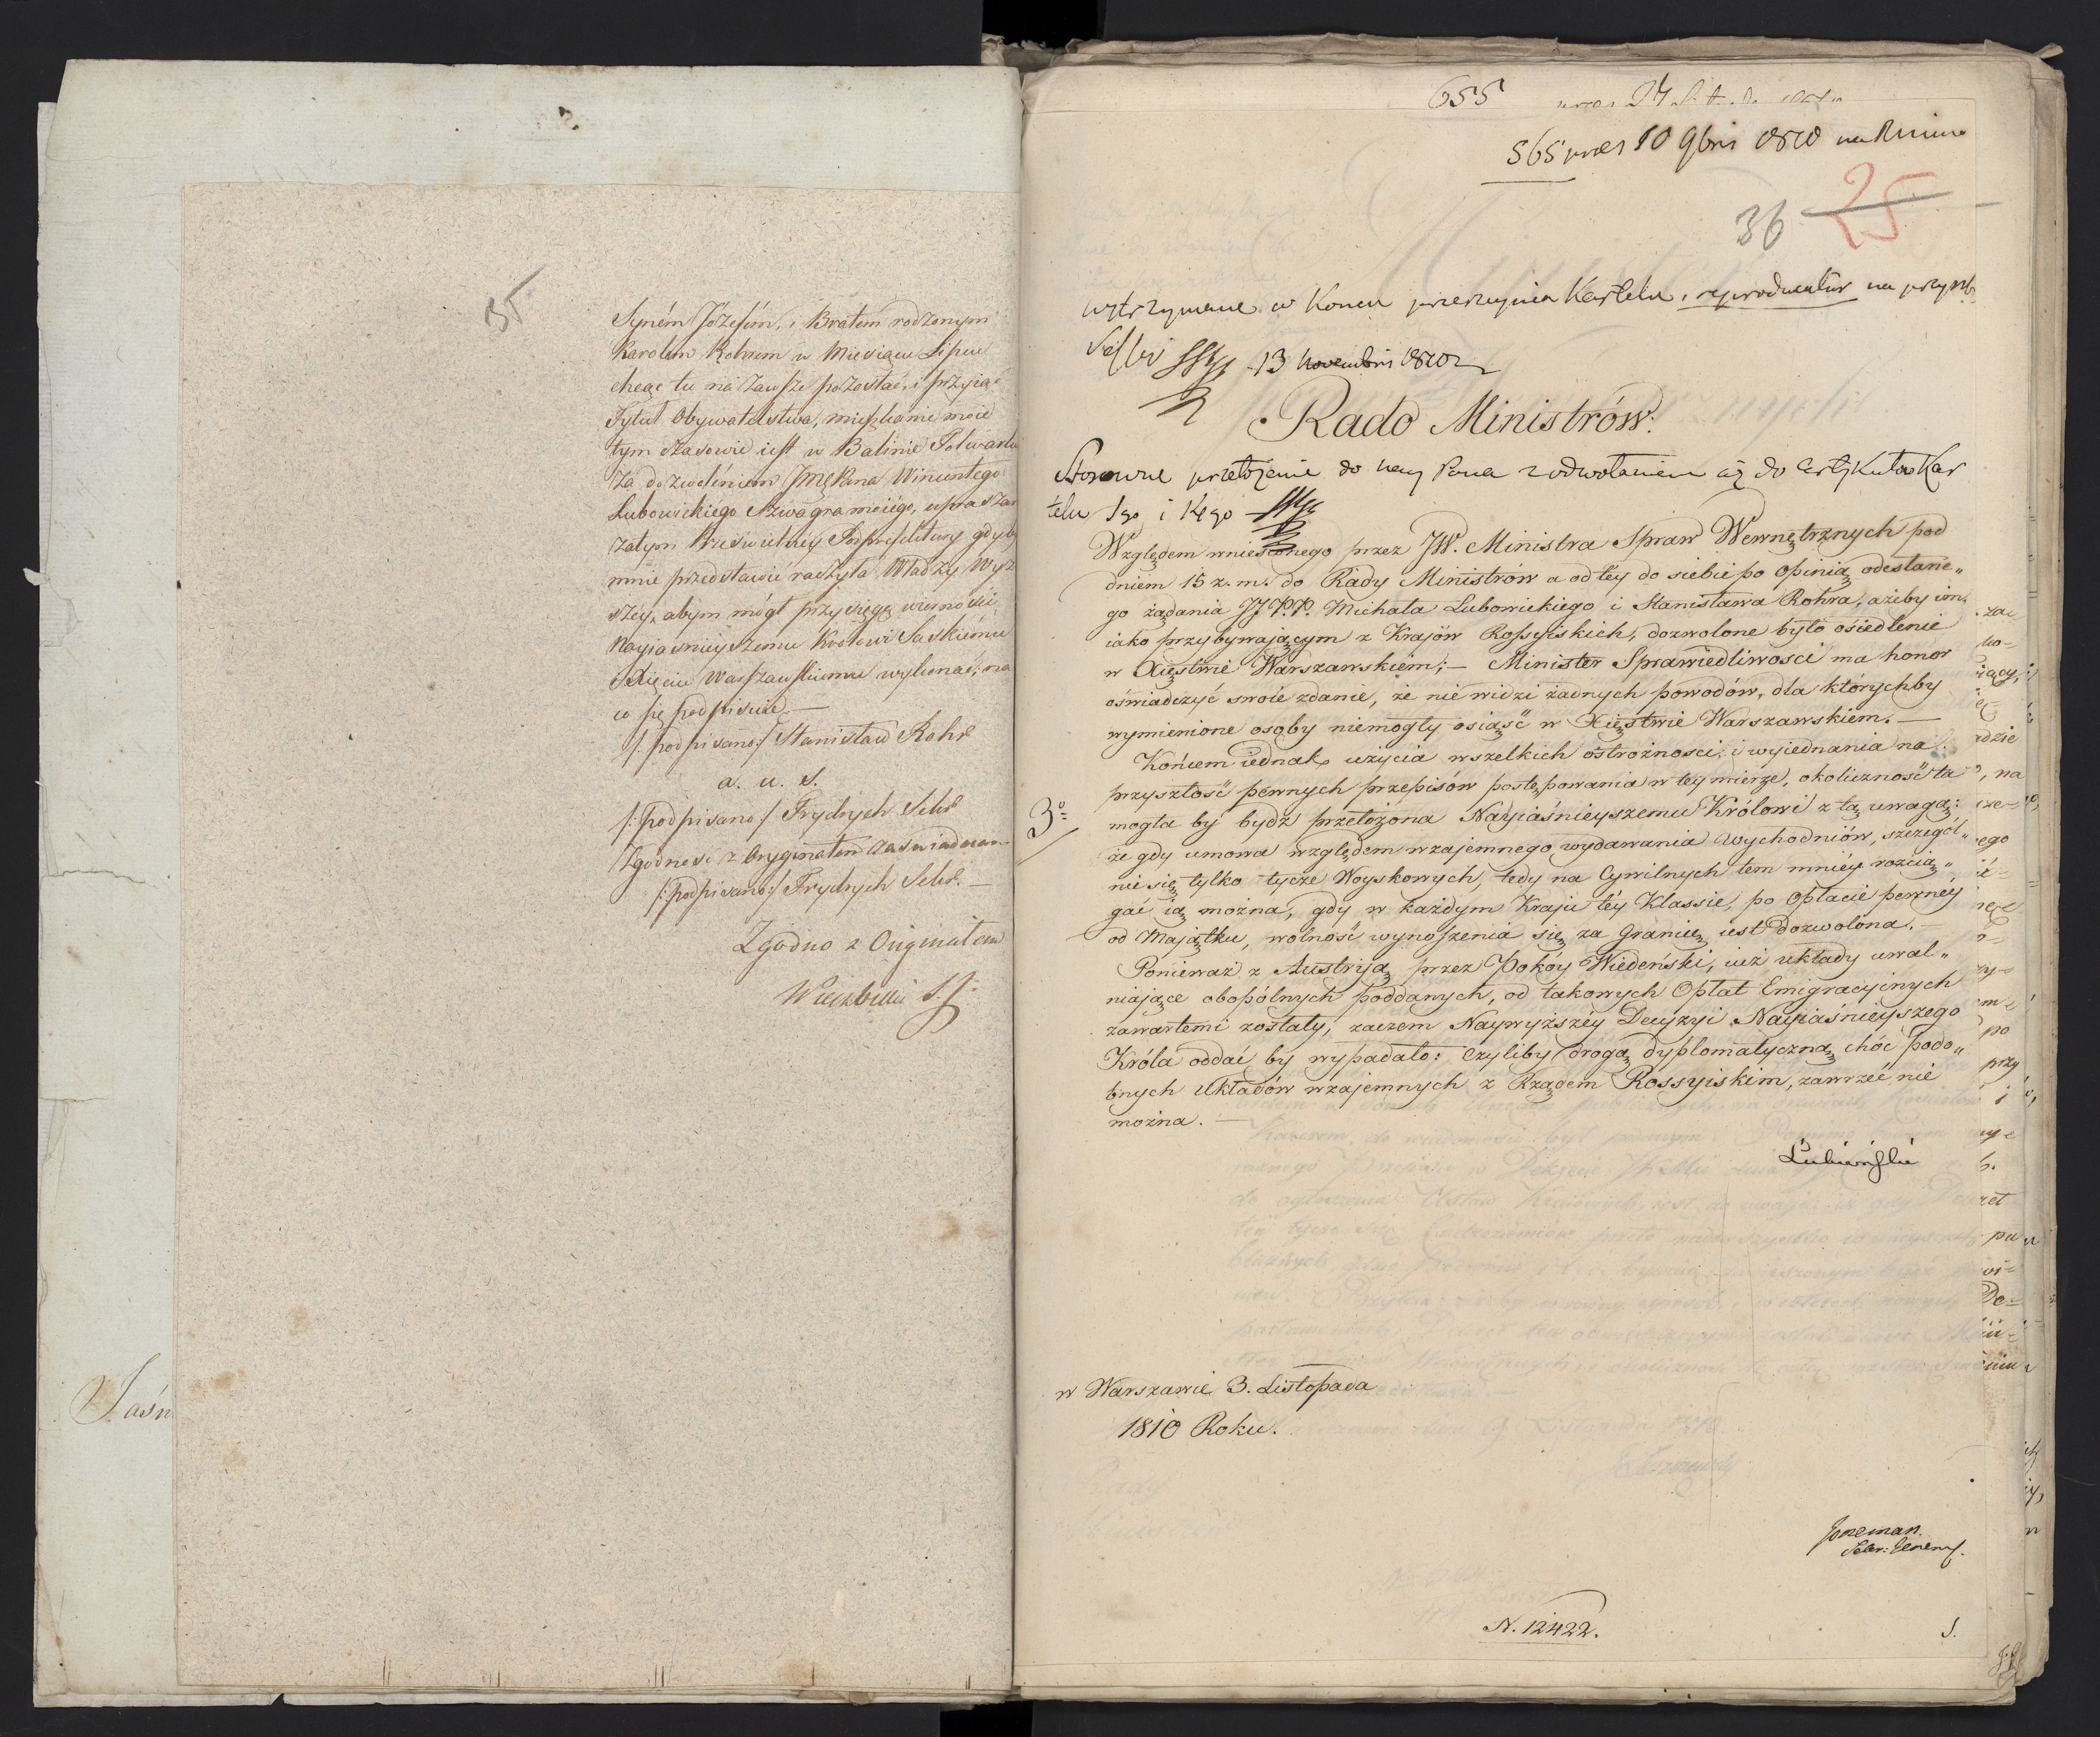 35
Syném Józefém, i Bratem rodzonym
Karolem Rohrem w Miesiącu Lipcu
chcąc tu na zawsze pozostać, i przyiąć
Tytuł Obywatelstwa, mieszkanie moie
tym czasowie iest w Balinie Folwarku
za dozwoleniem Jmć Pana Wincentego
Lubowickiego Szwagra moiégo, upraszam
zatym Prześwietney Podprefektury gdyby
mnie przedstawić raczyła Władzy Wyż
szey, abym mógł przysięgę wierności
Nayiaśnieyszemu Królowi Saskiému
Xięciu Warszawskiemu wykonać; na
co się podpisuię —
/: podpisano:/ Stanisław Rohr
a. u. s.
/: podpisano:/ Frydrych Sekr
Zgodność z Oryginałem zaświadczam
/: podpisano:/ Frydrych Sekr. —
Zgodno z Originałem
S. J.
Jaśn
655
565 praes 10 9bris 1810
36 25
wstrzymane w Koncu przeyrzenia Kartelu, reproducatur na przyszłey
Sessyi 13 Novembris 1810
Rado Ministrów.
Stosowne przełożenie do Nay Pana z odwołaniem aż do Artykułów Kar
telu 1go i 14go
Względem wniesionego przez JW. Ministra Spraw Wewnętrznych pod
dniem 15 z. m. do Rady Ministrów a od tey do siebie po opinią odesłane„
go żądania JJ P.P. Michała Lubowickiego i Stanisława Rohra, ażeby im
iako przybywaiącym z Kraiów Rossyiskich, dozwolone było osiedlenie
w Xięstwie Warszawskiém; — Minister Sprawiedliwości ma honor
oświadczyć swoie zdanie, że nie widzi żadnych powodów, dla którychby
wymienione osoby niemogły osiąść w Xięstwie Warszawskiem. —
Końcem iednak użycia wszelkich ostrożności, i wyiednania na
przyszłość pewnych przepisów postępowania w tey mierze, okoliczność ta
3o
mogła by bydź przełożona Nayiaśnieyszemu Królowi z tą uwagą:
że gdy umowa względem wzajemnego wydawania Wychodniów, szczegól„
nie się tylko tycze Woyskowych, tedy na Cywilnych tem mniéy rozcią„
gać ią można, gdy w każdym Kraju téy Klassie, po Opłacie pewnéy
od Majątku, wolność wynoszenia się za Granicę iest dozwolona. —
Ponieważ z Austryą przez Pokóy Wiedeński, iuż układy uwal„
niające obopólnych poddanych, od takowych Opłat Emigracyinych
zawartemi zostały, zaczem Naywyższéy Decyzyi Nayiaśnieyszego
Króla oddać by wypadało: czyliby drogą dyplomatyczną, chóć podo„
bnych Układów wzajemnych z Rządem Rossyiskim, zawrzeć nie
można. —
Łubieński
w Warszawie 3. Listopada
1810 Roku.
Sekr: Generl.
N. 12422.